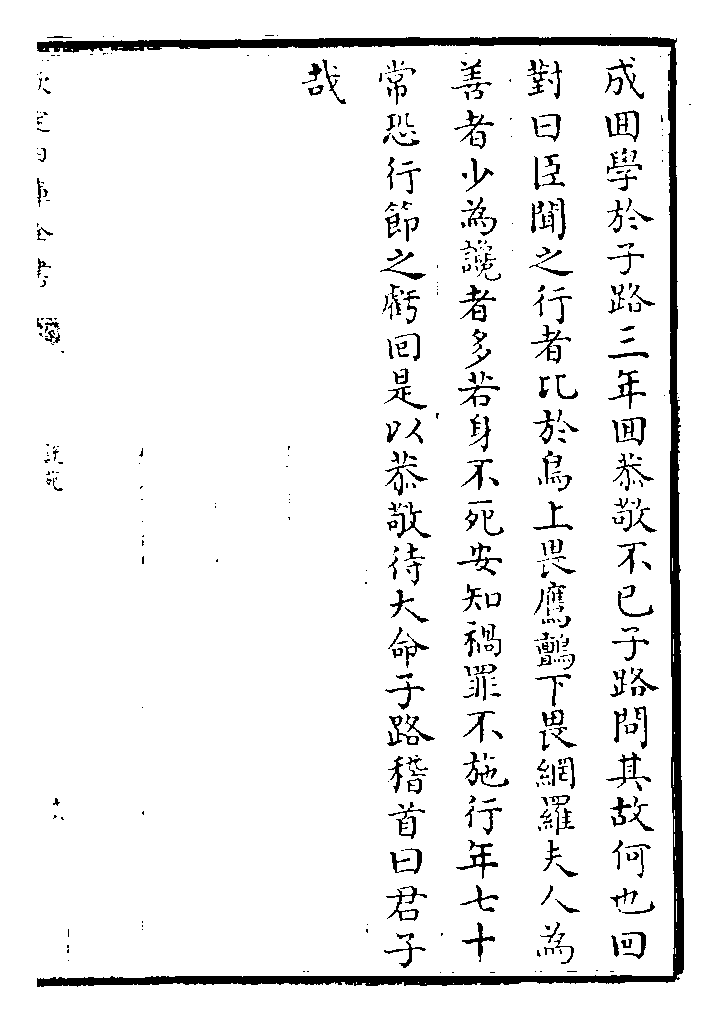 成回學於子路三年回恭敬不已子路問其故何也回
對曰臣聞之行者比於鳥上畏鷹鸇下畏網羅夫人為
善者少為讒者多若身不死安知禍罪不施行年七十
常恐行節之虧回是以恭敬待大命子路稽首曰君子
哉
欽定四庫全書
說苑
十八